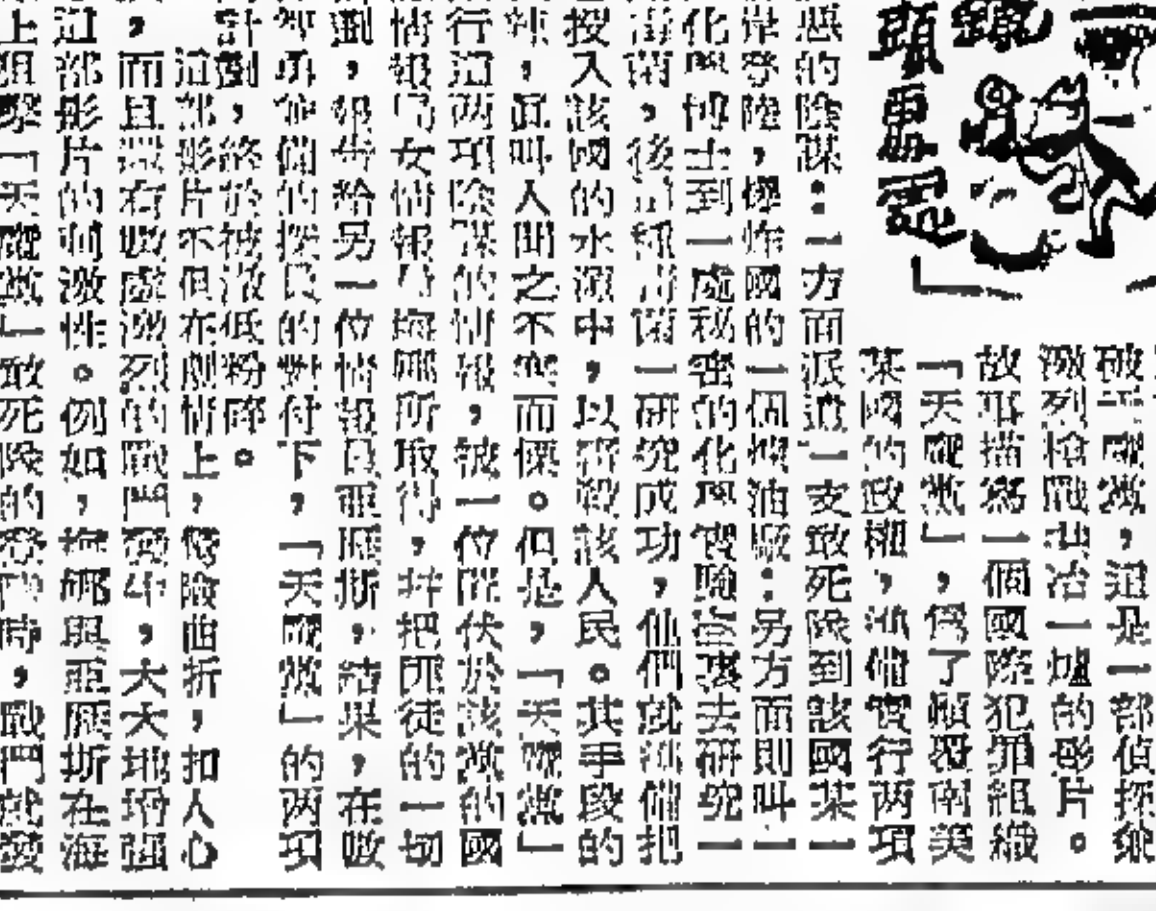 頭
破天魔黨，這是一部偵探
激烈槍戰共冶一爐的影片。
故事描寫一個國際犯罪組織
「天魔黨」，爲了顛覆南美
某國的政權，準備實行两項
惡的陰謀：一方面派遣一支敢死隊到該國某一
登陸，爆炸國的一個煉油廠；另方面則叫一
化學博士到一處秘密的化學實驗室裏去研究一
毒菌，後這種毒菌一研究成功，他們就準備把
投入該國的水源中，以殺該人民。其手段的
辣，眞叫人聞之不寒而慄。但是，「天魔黨」
行這两項陰謀的情報，被一位匿伏於該黨的國
情報局女情報員梅娜所取得，并把匪徒的一切
劃，報告給另一位情報員亞歷斯，結果，在
智勇兼備的探員的對付下，「天魔黨」的两項
計劃，終於被澈低粉碎。
這部影片不但在劇情上，驚險曲折，扣人心
，而且還有數處激烈的戰鬥發生，大大地增强
這部影片的刺激性。例如，梅娜與亞歷斯在海
上狙擊「天魔黨」敢死隊的登陸時，戰鬥就發